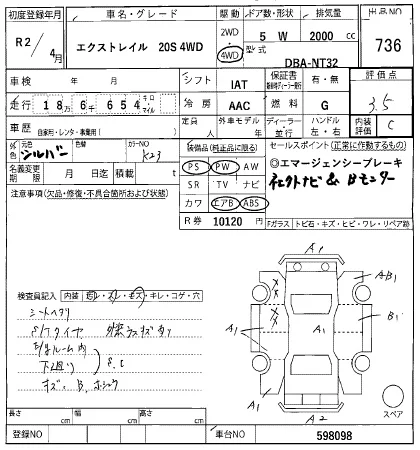 初度登録年月 車名・グレード 駆動 ドア数・形状 排気量 出品NO
R2/4月 エクストレイル 20S 4WD 2WD 4WD 5 W 2000 cc 736
型式 DBA-NT32
車検 年 月 シフト IAT 保証書 有・無 評価点 3.5
走行 18万6千654 キロ マイル 冷房 AAC 燃料 G
車歴 自家用・レンタ・事業用( ) 定員 外車モデル 年 ディーラー 並行 ハンドル 左・右 内装評価 C
外色 元色 シルバー 色替 カラーNO K23
装備品(純正品に限る) セールスポイント(正常に作動するもの)
名義変更期限 月 日迄 積載 t
PS PW AW
◎エマージェンシーブレーキ
注意事項(欠品・修復・不具合箇所および状態)
SR TV ナビ
カワ エアB ABS
R券 10120 円
Fガラス トビ石・キズ・ヒビ・ワレ・リペア跡
A1
AB1
検査員記入 内装
キレ・コゲ・穴
シートヘタリ
A1 A1 B1
下廻り S.C
A1 A2
スペア
長さ cm 幅 cm 高さ cm
登録NO 車台NO 598098